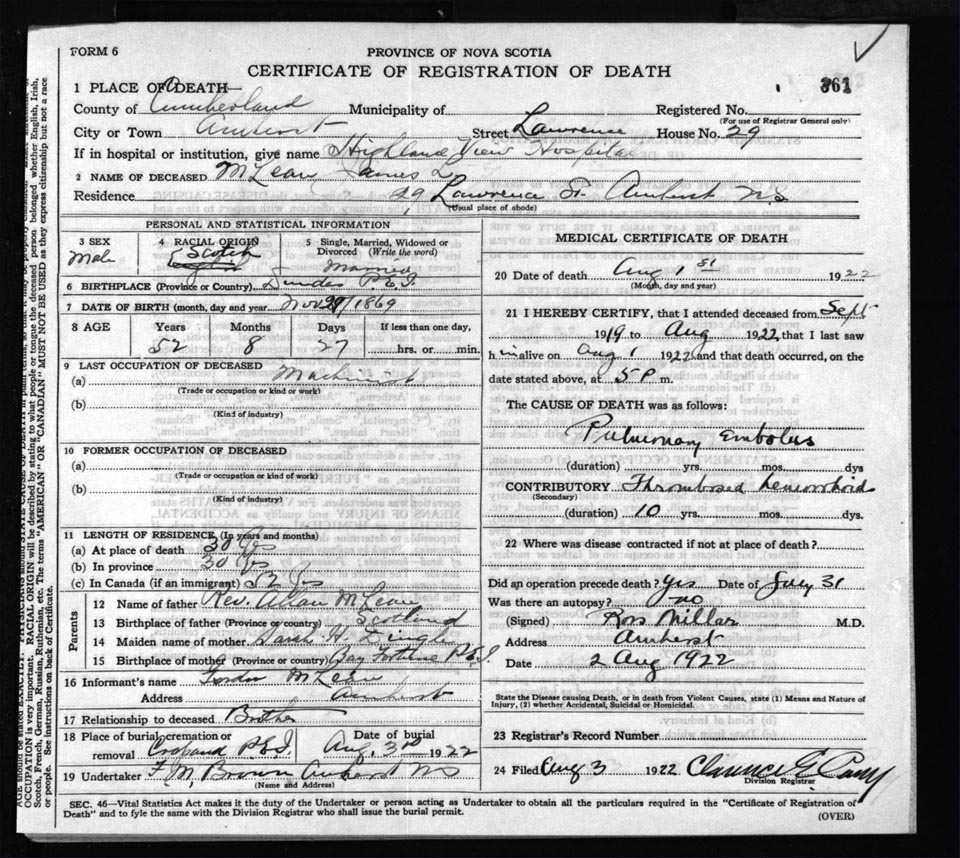 FORM 6
PROVINCE OF NOVA SCOTIA
CERTIFICATE OF REGISTRATION OF DEATH
361
1 PLACE OF DEATH—
County of Cumberland Municipality of Registered No.
(For use of Registrar General only)
City or Town Amherst Street Lawrence House No. 29
If in hospital or institution, give name Highland View Hospital
2 NAME OF DECEASED McLean James L
Residence 29 Lawrence St. Amherst N.S
(Usual place of abode)
PERSONAL AND STATISTICAL INFORMATION
3 SEX 4 RACIAL ORIGIN 5 Single, Married, Widowed or Divorced (Write the word)
Male Scotch Married
6 BIRTHPLACE (Province or Country) Dundas P.E.I.
7 DATE OF BIRTH (month, day and year) Nov /1869
8 AGE Years Months Days If less than one day,
52 8 27 hrs. or min.
9 LAST OCCUPATION OF DECEASED
(a) Machinist
(Trade or occupation or kind or work)
(b)
(Kind of industry)
10 FORMER OCCUPATION OF DECEASED
(a)
(Trade or occupation or kind of work)
(b)
(Kind of industry)
11 LENGTH OF RESIDENCE (In years and months)
(a) At place of death 30 Yrs
(b) In province 30 Yrs
(c) In Canada (if an immigrant) 52 Yrs
Parents
12 Name of father Rev. Allan McLean
13 Birthplace of father (Province or country) Scotland
14 Maiden name of mother Sarah H. Dingle
15 Birthplace of mother (Province or country) Bay Fortune P.E.I.
16 Informant's name Gordon McLean
Address Amherst
17 Relationship to deceased Brother
18 Place of burial, cremation or removal Crapaud P.E.I. Date of burial Aug. 3rd 1922
19 Undertaker F. M. Brown Amherst NS
(Name and Address)
MEDICAL CERTIFICATE OF DEATH
20 Date of death Aug 1st 1922
(Month, day and year)
21 I HEREBY CERTIFY, that I attended deceased from Sept
1919 to Aug 1922 that I last saw
him alive on Aug 1 1922 and that death occurred, on the
date stated above, at 5 P m.
The CAUSE OF DEATH was as follows:
Pulmonary Embolus
(duration) yrs. mos. dys
CONTRIBUTORY Thrombosed hemorrhoid
(Secondary)
(duration) 10 yrs. mos. dys.
22 Where was disease contracted if not at place of death?
Did an operation precede death? Yes Date of July 31
Was there an autopsy? no
(Signed) Ross Millar M.D.
Address Amherst
Date 2 Aug 1922
State the Disease causing Death, or in death from Violent Causes, state (1) Means and Nature of
Injury, (2) whether Accidental, Suicidal or Homicidal.
23 Registrar's Record Number
24 Filed Aug 3 1922 Clarence E
Division Registrar
SEC. 46—Vital Statistics Act makes it the duty of the Undertaker or person acting as Undertaker to obtain all the particulars required in the "Certificate of Registration of
Death" and to fyle the same with the Division Registrar who shall issue the burial permit. (OVER)
OCCUPATION is very important. RACIAL ORIGIN will be described by stating to what people or tongue the deceased person belonged whether English, Irish,
Scotch, French, German, Russian, Ruthenian, etc. The terms "AMERICAN" OR "CANADIAN" MUST NOT BE USED as they express citizenship but not a race
or people. See instructions on back of Certificate.